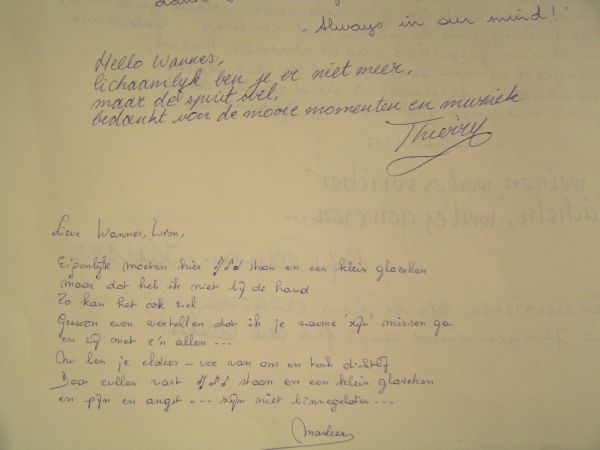 "Always in our mind!"
Hello Wannes,
lichaamlijk ben je er niet meer,
maar do spirit wel,
bedankt voor de mooie momenten en muziek
Thierry
weinen, weil es vorüber
lächeln, weil es gewesen...
Lieve Wannes, Wim,
Eigenlijk moeten hier staan en een klein glaseken
maar dat heb ik niet bij de hand
Zo kan het ook wel
Gewoon even vertellen dat ik je warme 'zijn' missen ga
en wij met z'n allen ---
Nu ben je elders - ver van ons en toch dichtbij
Daar zullen vast staan en een klein glaseken
en pijn en angst --- zijn niet binnegelaten ---
Marleen